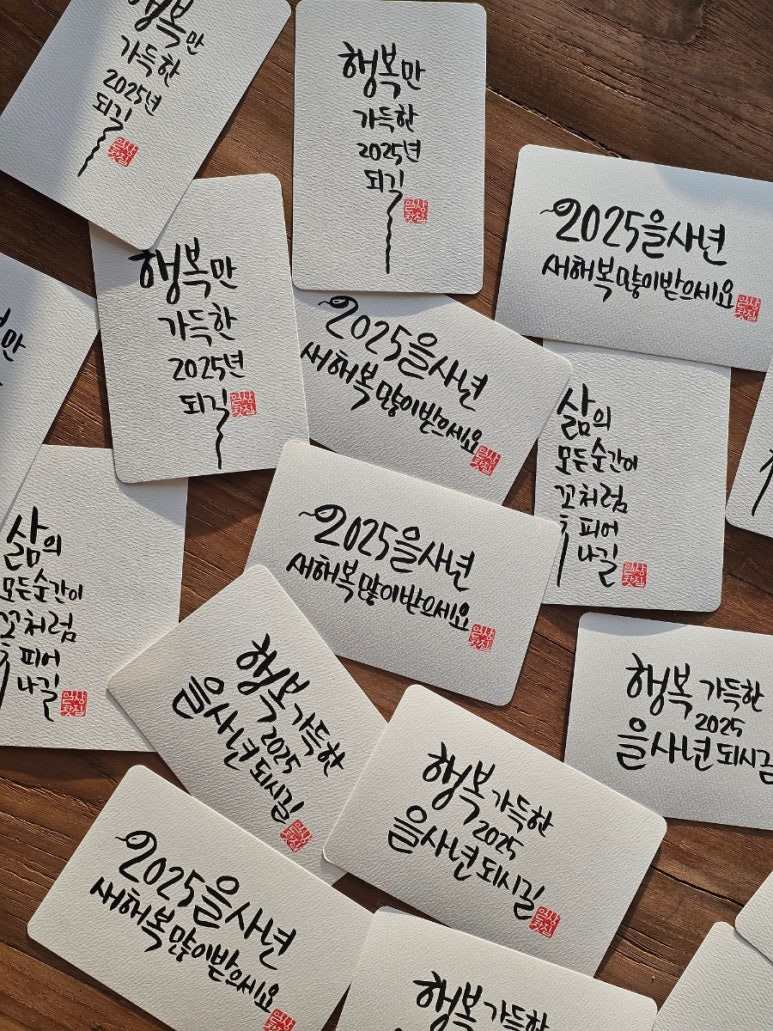 행복만
가득한
2025년
되길
행복만
가득한
2025년
되길
2025을사년
새해복많이받으세요
행복만
가득한
2025년
되길
2025을사년
새해복많이받으세요
삶의
모든순간이
꽃처럼
피어
나길
만
2025을사년
새해복많이받으세요
삶의
모든순간이
꽃처럼
피어
나길
행복 가득한
2025
을사년 되시길
행복 가득한
2025
을사년 되시길
행복 가득한
2025
을사년 되시길
2025을사년
새해복많이받으세요
행복 가득한